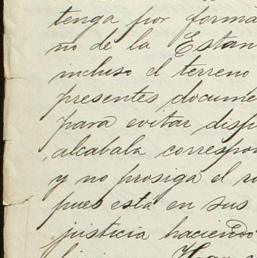 tenga por forma
no de la Estan
incluso el terreno
presentes docume
para evitar disp
alcabala correspon
y no prosiga el
pues está en sus
justicia haciendo